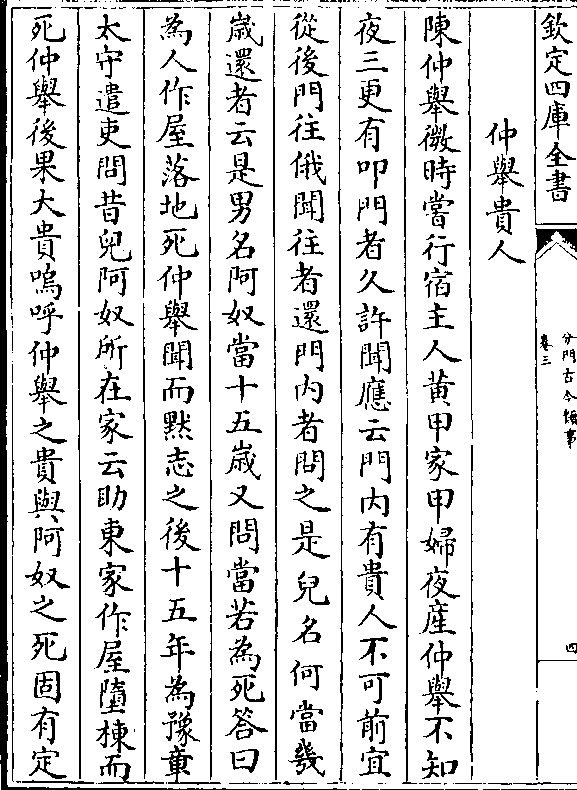 欽定四庫全書
分門古今類事
卷三
四
仲舉貴人
陳仲舉微時嘗行宿主人黄甲家甲婦夜產仲舉不知
夜三更有叩門者久許聞應云門内有貴人不可前宜
從後門往俄聞往者還門内者問之是兒名何當幾
歲還者云是男名阿奴當十五歲又問當若為死答曰
為人作屋落地死仲舉聞而黙志之後十五年為豫章
太守遣吏問昔兒阿奴所在家云助東家作屋墮棟而
死仲舉後果大貴嗚呼仲舉之貴與阿奴之死固有定